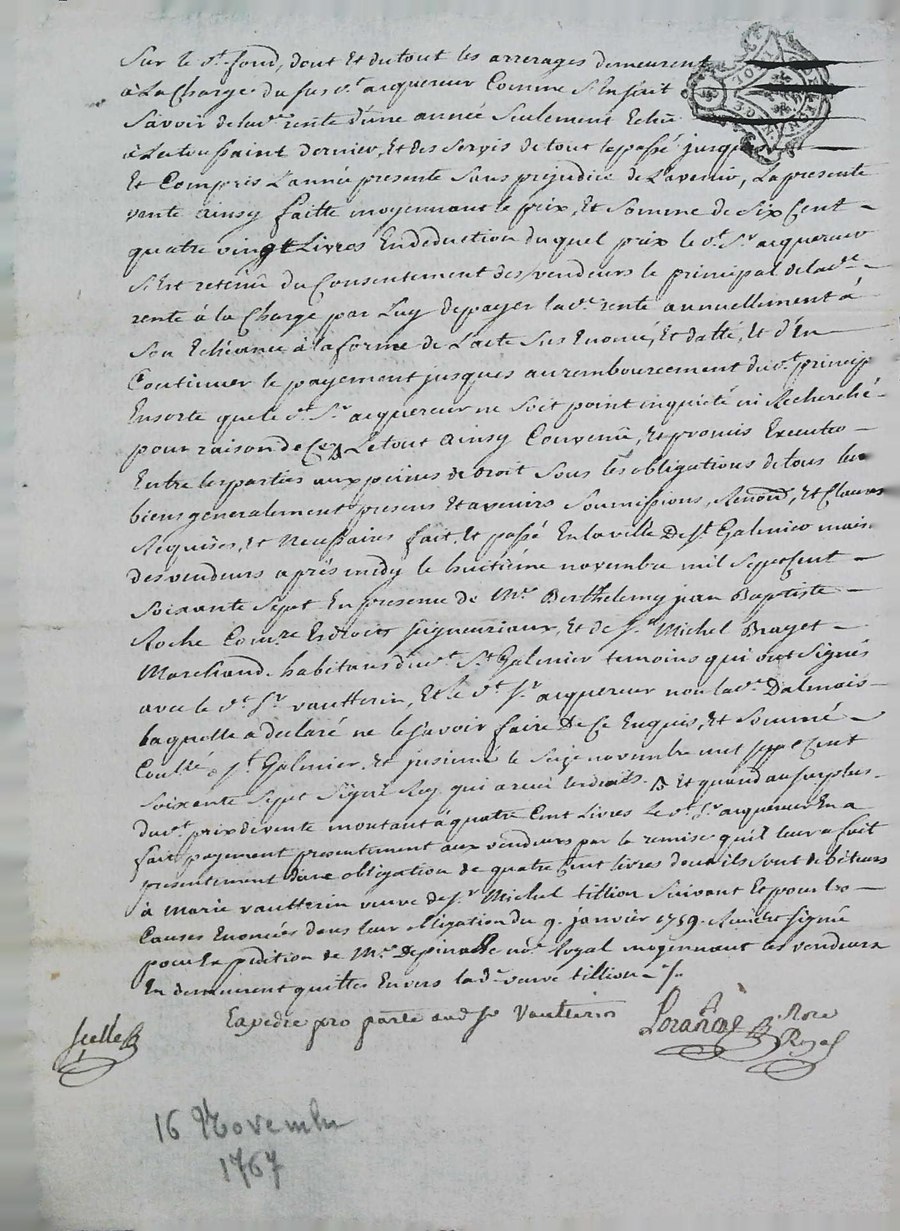 Sur le d.t fond, dont Et du tout les arrerages demeurent
à La Charge du sus d.t aquereur Comme S'En fait
Savoir de lad.e rente d'une année Seulement Echeu
à La toussaint dernier, Et des Servis de tout le passé jusques
Et Compris L'année presente Sans prejudice de L'avenir, La presente
vante ainsy faitte moyennant le prix, Et Somme de Six Cent
quatre vingt Livres En deduction du quel prix le d.t S.r aquereur
S'Est retenû du Consentement des vendeurs le principal de lad.e
rente à la Charge par Luy de payer lad.e rente annuellement à
Son Echéance à la forme de L'acte Sus Enoncé, Et datté, Et d'En
Continuer le payement jusques au remboursement dud.t princip
En sorte que le d.t S.r aquereur ne Soit point inquieté ni Recherché
pour raison de Ce, Le tout ainsy Convenû, Et promis Executer
Entre les parties aux peines de droit Sous les obligations de tous les
biens generalement presens Et avenirs Soumissions, Renond, Et Clauses
Requises, Et Necessaires fait, Et passé En la ville De S.t Galmier mais.
des vendeurs après midy le huitiéme novembre mil Sept Cent
Soixante Sept En presence de M.re Berthelemy jean Baptiste
Roche Com.re Es droits seigneuriaux, Et de S.r Michel Brayet
Marchand habitans dud.t S.t Galmier temoins qui ont Signés
avec le d.t S.r vautterin, Et le d.t S.r aquereur non lad.e Dalmais
laquelle a declaré ne le Savoir faire De Ce Enquis, Et Sommé
Conllé S.t Galmier, Et jnsinué le Seize novembre mil Sept Cent
Soixante Sept Signé Rey qui a recu les droits. Et quand au Surplus
dud.t prix de vente montant à quatre Cent Livres le d.t S.r aquereur En a
fait payement presentement aux vendeurs par la remise qu'il leur a fait
presentement d'une obligation de quatre Cent livres dont ils Sont debiteurs
à Marie vautterin veuve de S.r Michel tillion Suivant Et pour les
Causes Enoncées dans leur obligation du 9. janvier 1759. Signé
pour Expedition de M.re Depinasse no.re Royal moyennant les vendeurs
En demeurent quittes Envers la d.e veuve tillion
Expedié pro parte aud. S.r Vautterin
Scellé
Nore
Royal
16 Novembre
1767